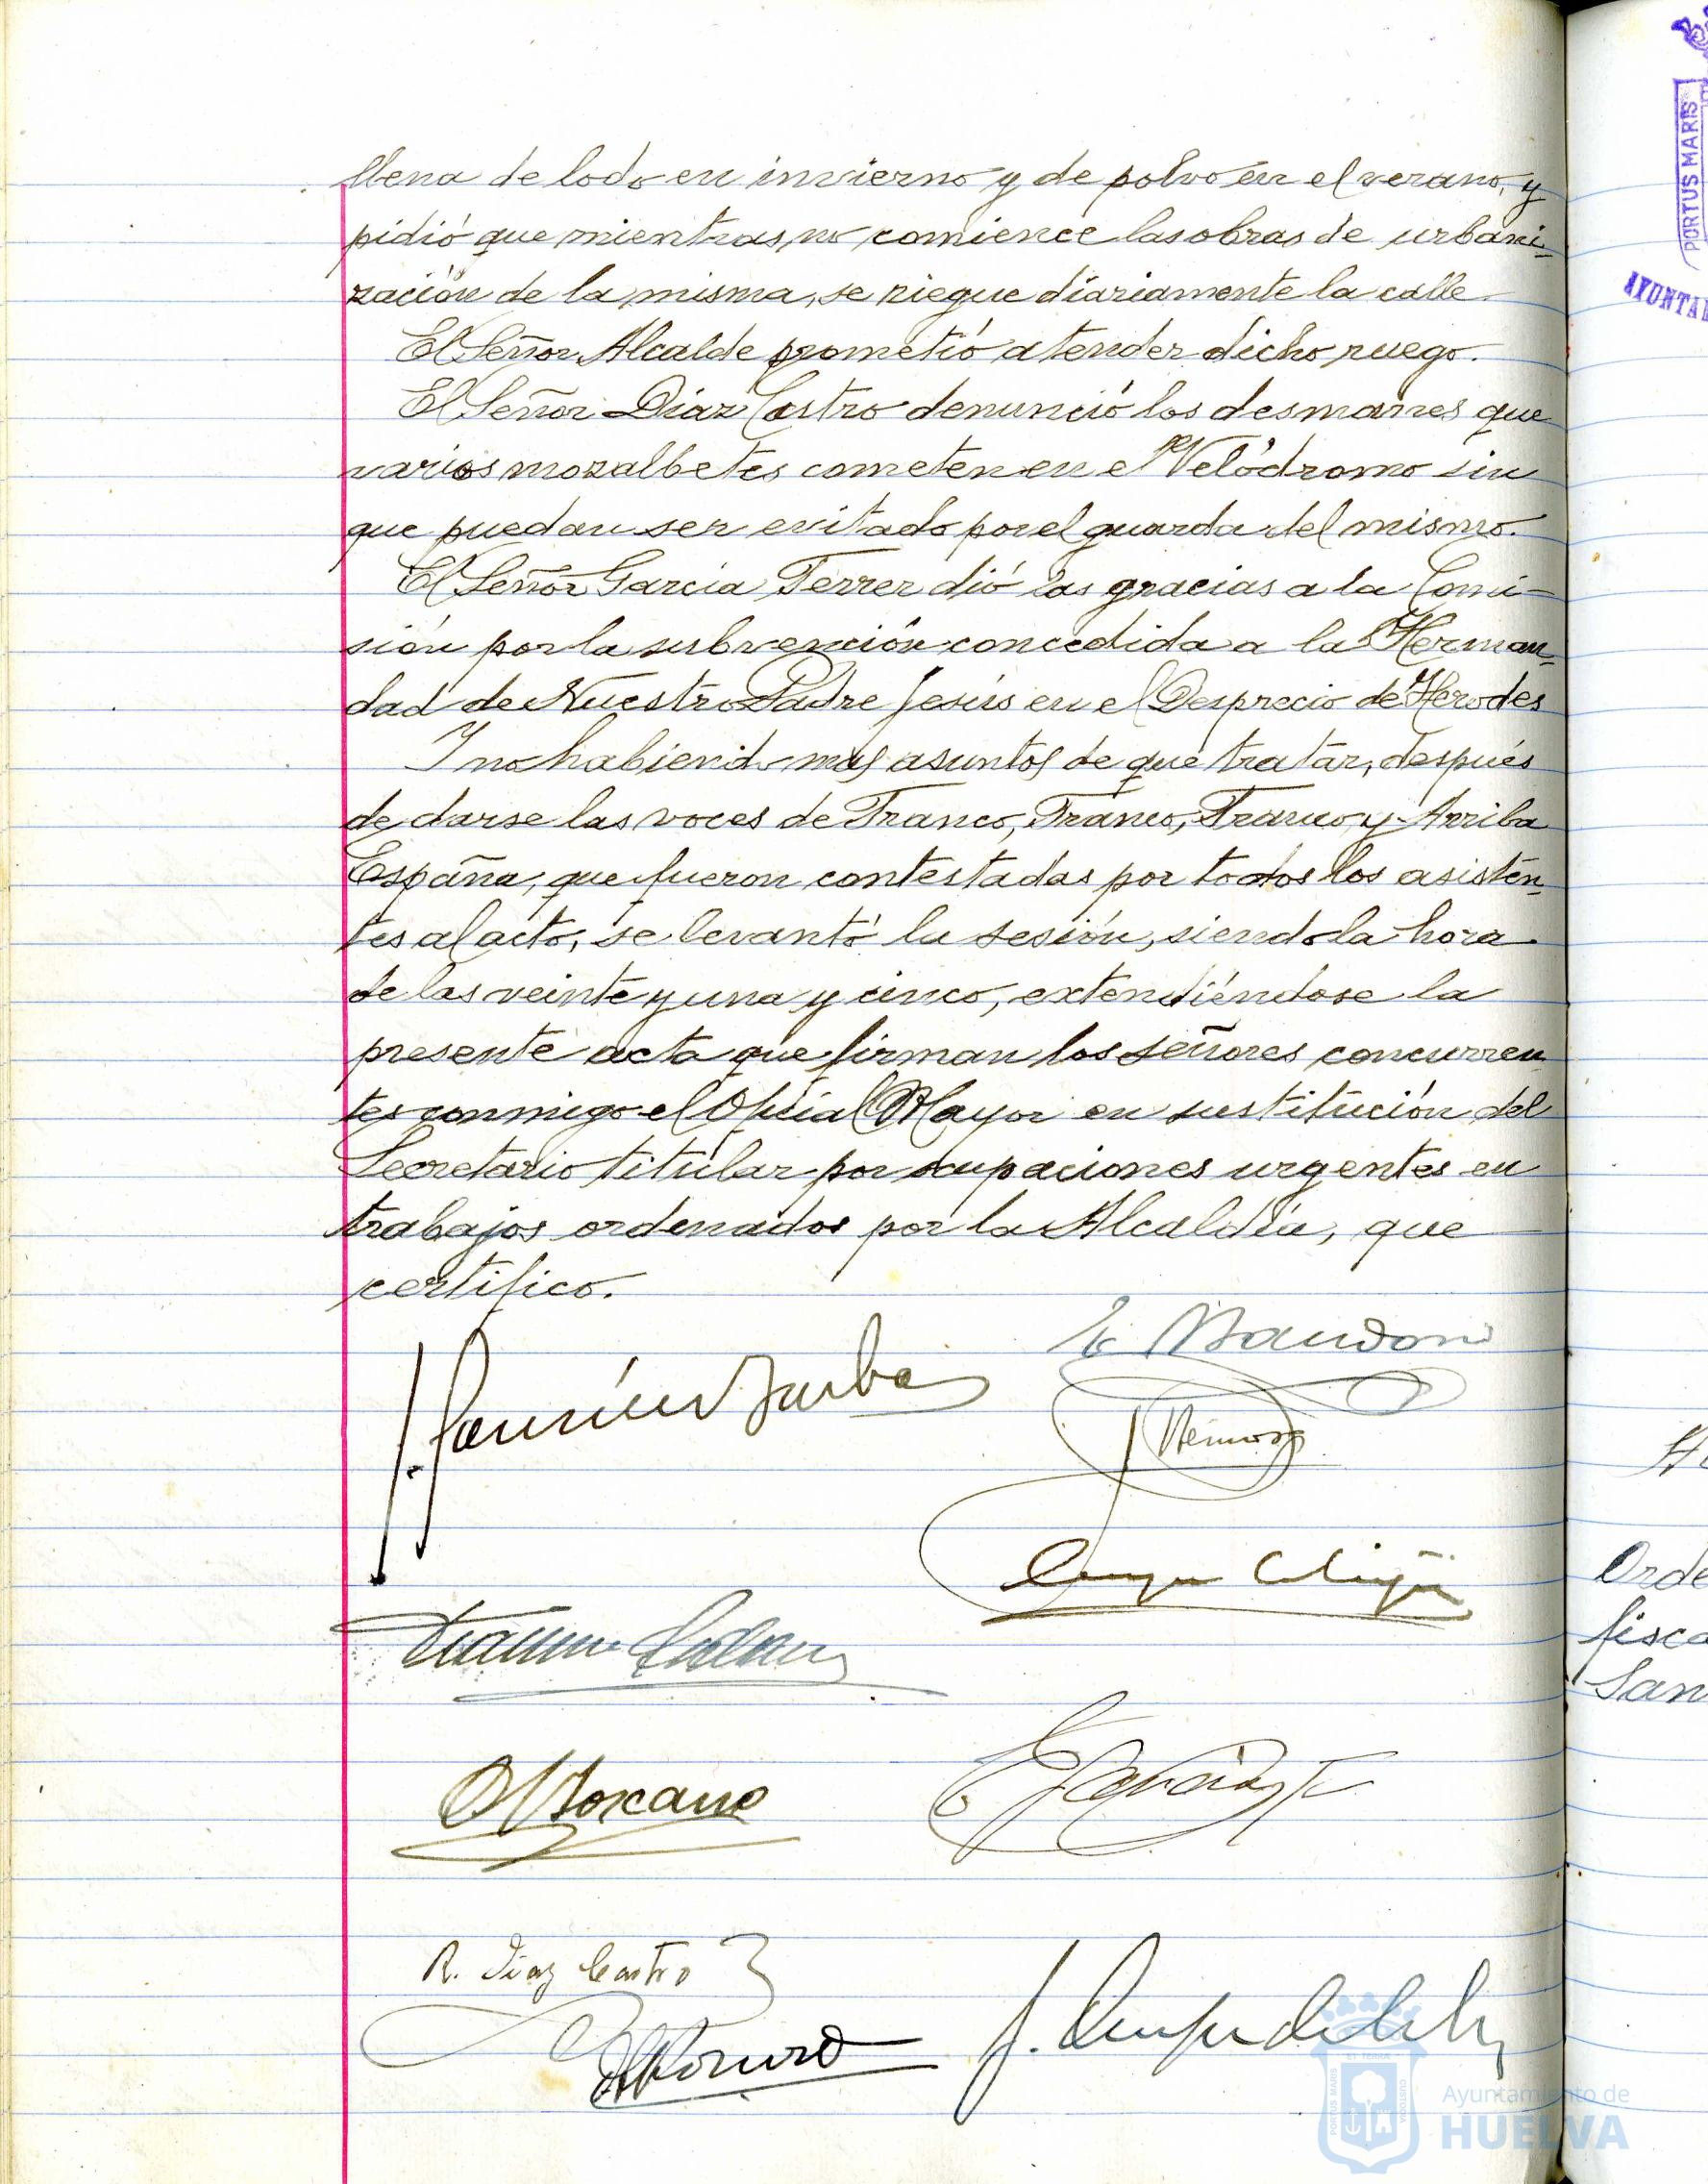 llena de lodo en invierno y de polvo en el verano, y
pidió que mientras no comience las obras de urbani-
zación de la misma, se riegue diariamente la calle
El Señor Alcalde prometió atender dicho ruego.
El Señor Díaz Castro denunció los desmanes que
varios mozalbetes cometen en el Velódromo sin
que puedan ser evitado por el guarda del mismo.
El Señor García Ferrer dió las gracias a la Comi-
sión por la subvención concedida a la Herman-
dad de Nuestro Padre Jesús en el Desprecio de Herodes
Y no habiendo mas asuntos de que tratar, después
de darse las voces de Franco, Franco, Franco y Arriba
España, que fueron contestadas por todos los asisten-
tes al acto, se levantó la sesión, siendo la hora
de las veinte y una y cinco, extendiéndose la
presente acta que firman los señores concurren-
tes conmigo el Oficial Mayor en sustitución del
Secretario titular por ocupaciones urgentes en
trabajos ordenados por la Alcaldía, que
certifico.
R. Díaz Castro
PORTUS MARIS
AYUNTA
Orde
fisca
San
Ayuntamiento de
HUELVA